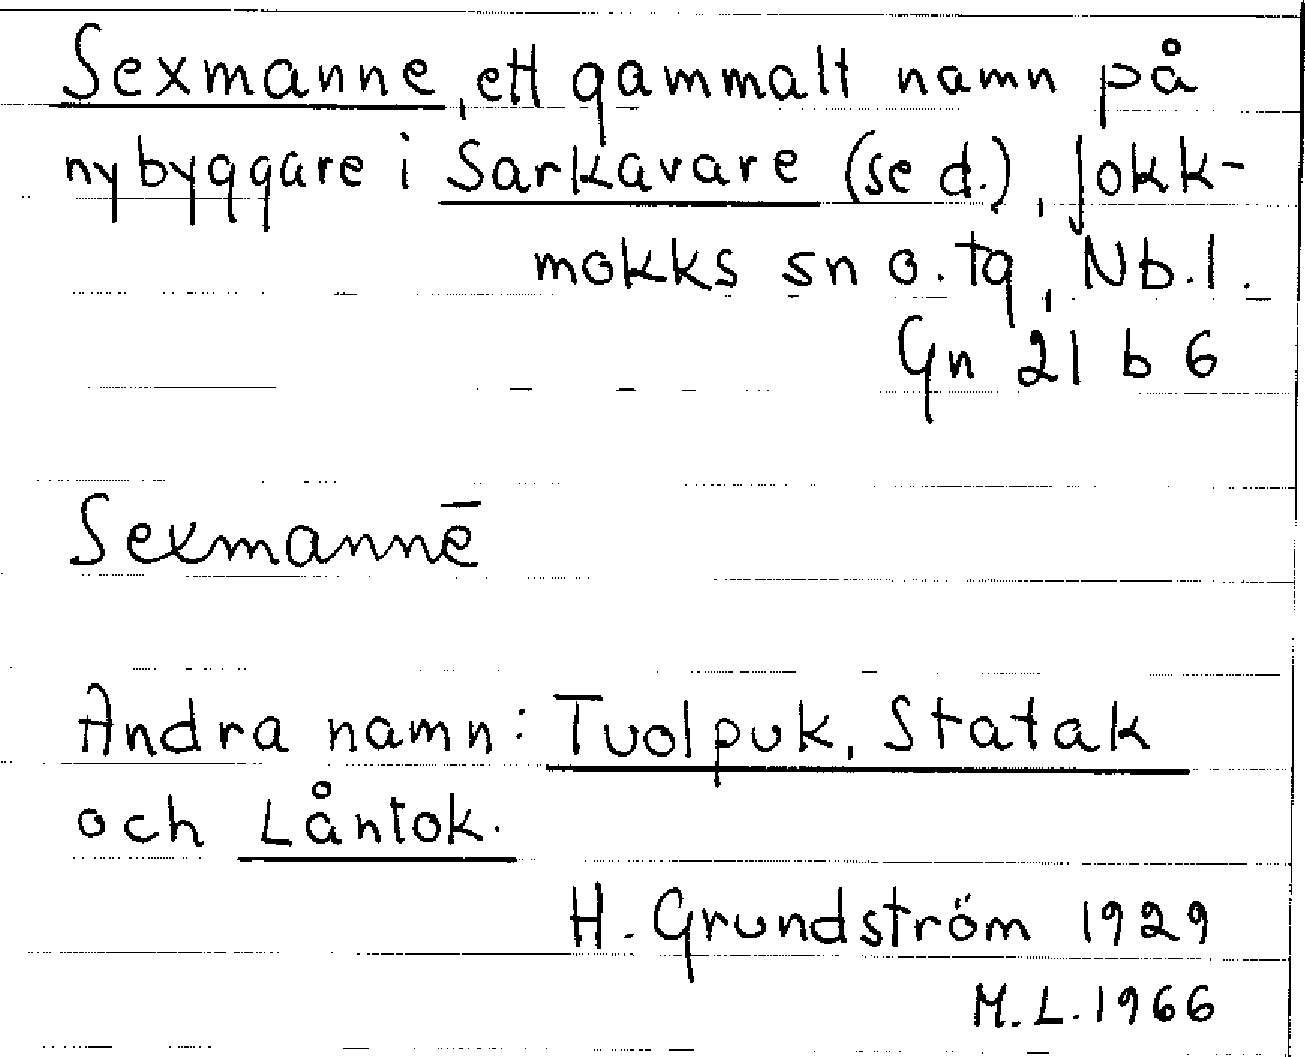 Sexmanne, ett gammalt namn på
nybyggare i Sarkavare (se d.), Jokk-
mokks sn o. tg, Nb. l.
Gn 21 b 6
Sexmannē
Andra namn: Tuolpuk, Statak
och Låntok.
H. Grundström 1929
M.L. 1966